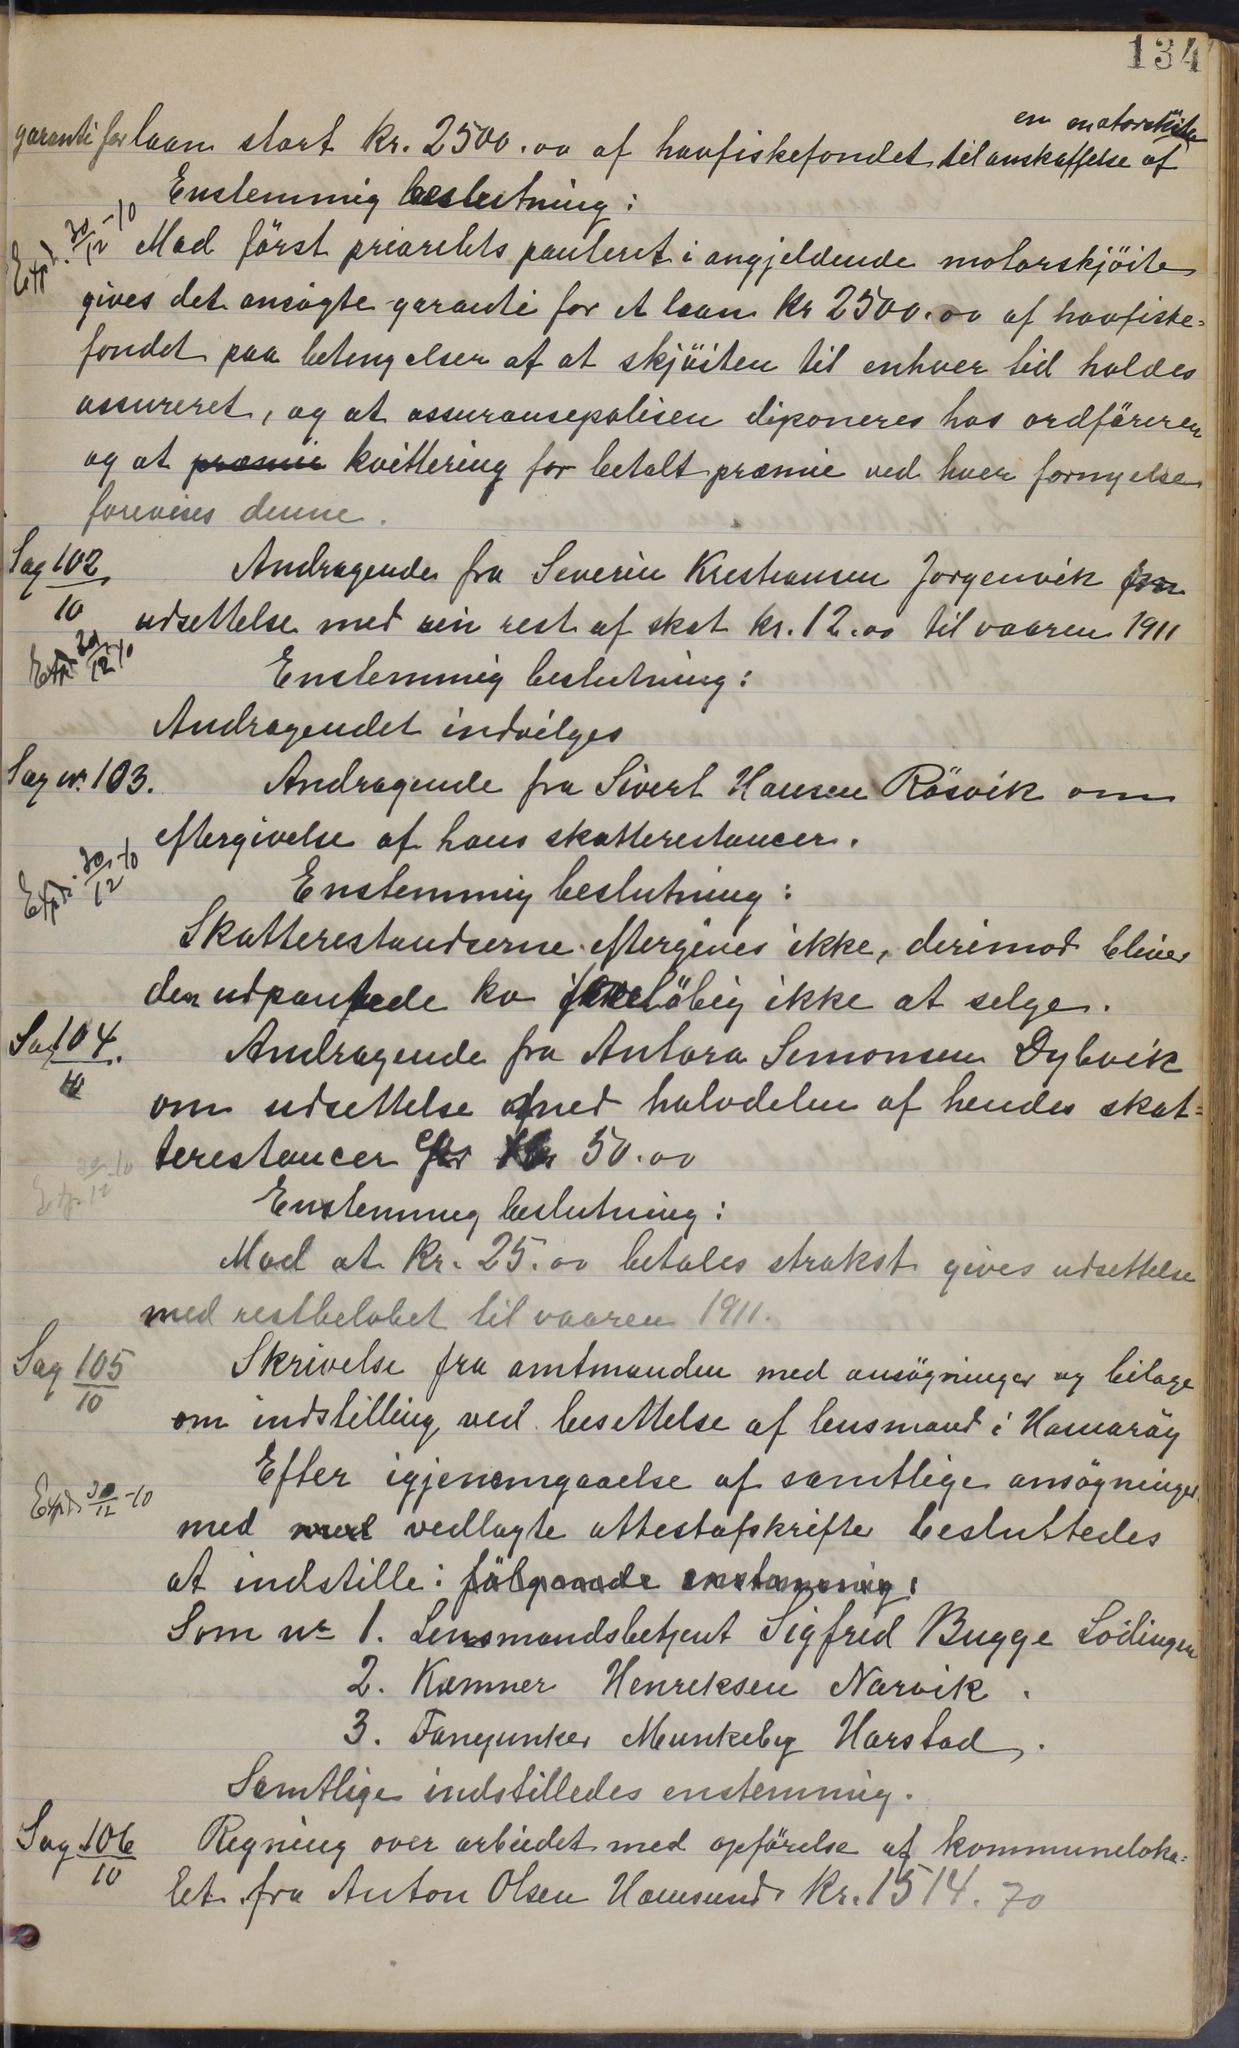 134
en motorskøite
garanti for laan stort kr. 2500.00 af havfiskefondet til anskaffelse af
Enstemmig beslutning:
Expd. 30/12-10
Mod først prioritets panteret i angjeldende motorskjøite
gives det ansøgte garanti for et laan kr 2500.00 af havfiske-
fondet paa betingelser af at skjøiten til enhver tid holdes
assureret, og at assuransepolisen diponeres hos ordføreren
og at præmie kvittering for betalt præmie ved hver fornyelse
forevises denne.
Sag 102/10
Andragende fra Severin Kristiansen Jørgenvik om
udsettelse med sin rest af skat kr. 12.00 til vaaren 1911
Expd. 30/12-10
Enstemmig beslutning:
Andragendet indvilges
Sag nr. 103.
Andragende fra Sivert Hansen Røsvik om
eftergivelse af hans skatterestancer.
Expd. 30/12-10
Enstemmig beslutning:
Skatterestandserne eftergives ikke, derimod bliver
den udpantede ko foreløbig ikke at selge.
Sag 104/10.
Andragende fra Antora Simonsen Dybvik
om udsettelse med halvdelen af hendes skat-
terestancer kr 50.00
Exp. 30/12-10
Enstemmig beslutning:
Mod at kr. 25.00 betales strakst gives udsettelse
med restbeløbet til vaaren 1911.
Sag 105/10
Skrivelse fra amtmanden med ansøgninger og bilage
om indstilling ved besettelse af lensmand i Hamarøy
Efter igjennemgaaelse af samtlige ansøgninger
Expd. 30/12-10
med med vedlagte attestafskrifter besluttedes
at indstille: følgende enstemmig:
Som nr 1. Lensmandsbetjent Sigfred Bugge Lødingen
2. Kæmner Henriksen Narvik.
3. Fanejunker Munkeby Harstad.
Samtlige indstilledes enstemmig.
Sag 106/10
Regning over arbeidet med opførelse af kommuneloka-
let fra Anton Olsen Hamsund kr. 1514.70